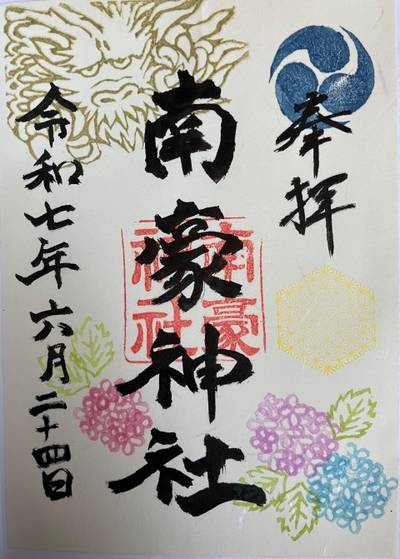 奉拝
南豪神社
南豪神社
令和七年六月二十四日